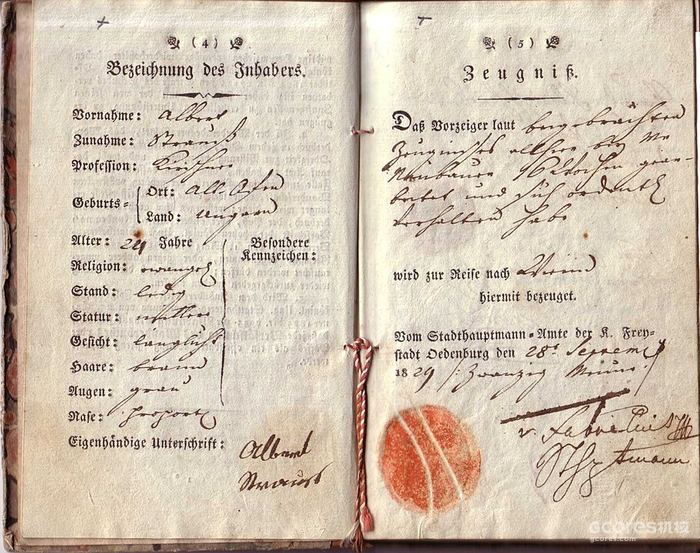 ( 4 )
Bezeichnung des Inhabers.
Vornahme: Albert
Zunahme: Strauß
Profession: Kirschner
Geburts=
Ort: Alt Ofen
Land: Ungarn
Alter: 24 Jahre
Besondere
Kennzeichen:
Religion: evangel
Stand: ledig
Statur: mittere
Gesicht: länglicht
Haare: braun
Augen: grau
Nase: proport
Eigenhändige Unterschrift: Albert
Strauß
( 5 )
Zeugniß.
Daß Vorzeiger laut beygebrachten
Zeugnisses allhier bey
Neubauer 16 Wochen gear-
beitet und sich ordentl
verhalten habe
wird zur Reise nach Wien
hiermit bezeuget.
Vom Stadthauptmann=Amte der K. Frey=
stadt Oedenburg den 28t Septemb
1829 /: Zwanzig Neun :/
v.
Sthptmann
gcores机核
gcores.com